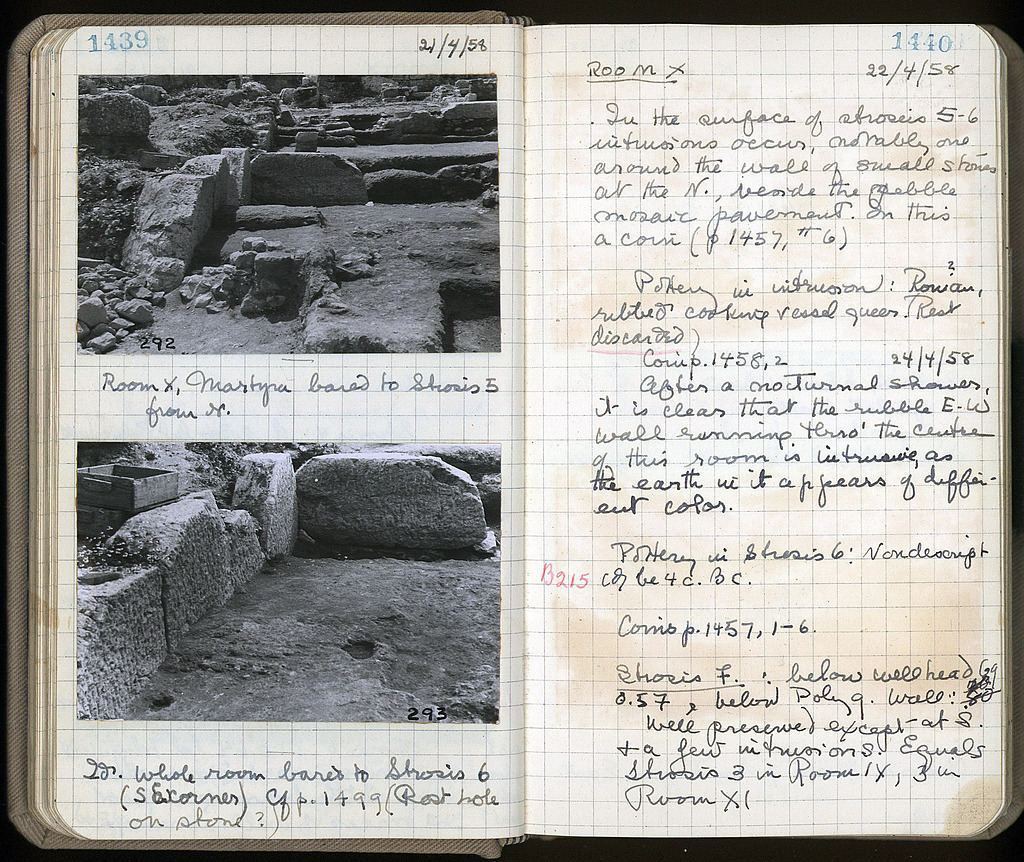 1439
21/4/58
292
Room X, Martyra bared to Strosis 5
from N.
293
Id. whole room bared to Strosis 6
(SE corner) Cf p. 1499 (Post hole
on stone?)
1440
ROOM X 22/4/58
. In the surface of strosis 5-6
intrusions occur, notably one
around the wall of small stones
at the N., beside the pebble
mosaic pavement. In this
a coin (p 1457, #6)
Pottery in intrusion: Roman?,
ribbed cooking vessel pieces. Rest
discarded)
Coin p. 1458, 2 24/4/58
After a nocturnal shower,
it is clear that the rubble E-W
wall running thro' the centre
of this room is intrusive, as
the earth in it appears of differ-
ent color.
Pottery in Strosis 6: Nondescript
B215 cd be 4 c. B C.
Coins p. 1457, 1-6.
Strosis 7. : below wellhead
0.57, below Polyg. Wall:
Well preserved except at S.
+ a few intrusions. Equals
Strosis 3 in Room IX, 3 in
Room XI